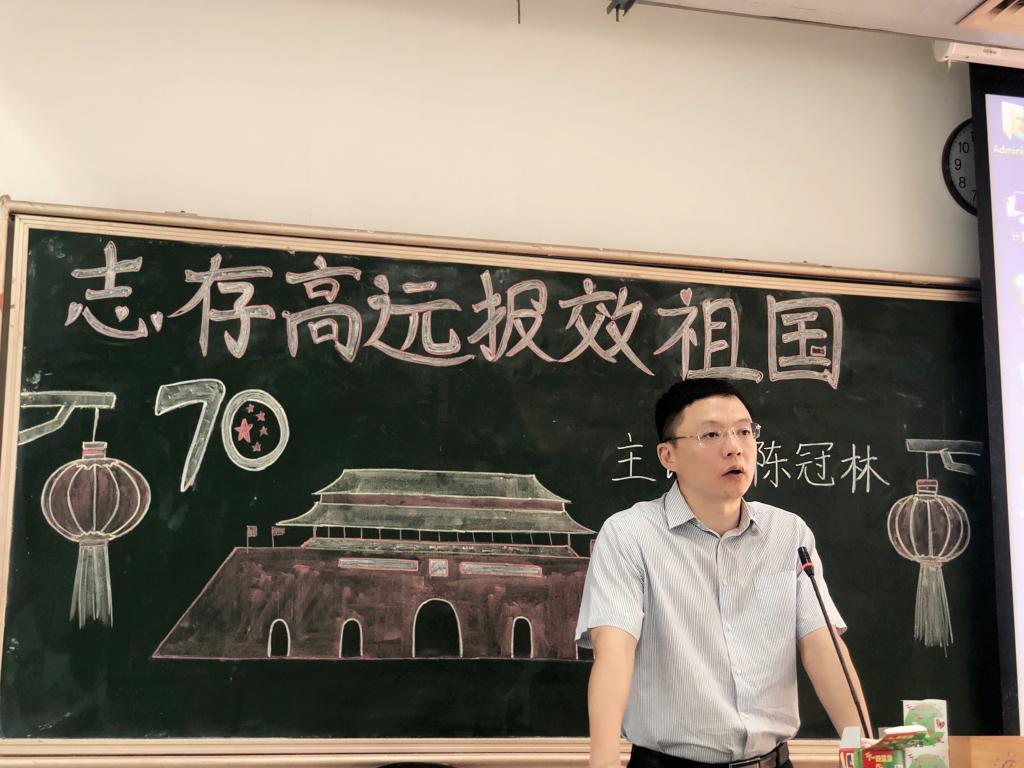 志存高远报效祖国
70
主 陈冠林
10
9
8
7
Admini